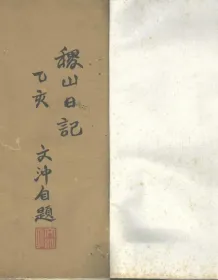 稷山日記
乙亥
文沖自題